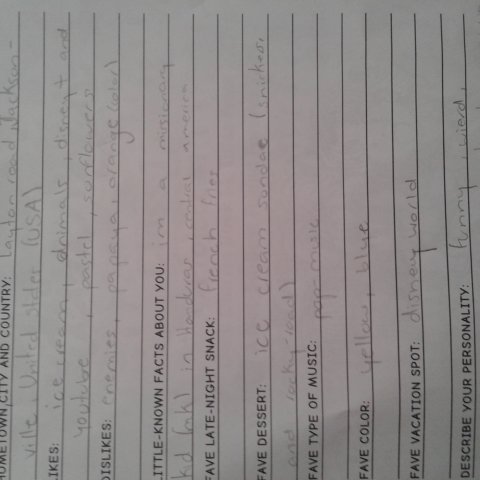 HOMETOWN, CITY AND COUNTRY: layton road, Jackson-
ville United States (USA)
LIKES: ice cream, animals, disney and
youtube, pastel, sunflowers
DISLIKES: enemies, papaya, orange (color)
LITTLE-KNOWN FACTS ABOUT YOU: im a missionary
kid (mk) in Honduras, central america
FAVE LATE-NIGHT SNACK: french fries
FAVE DESSERT: ice cream sundae (snickers,
and rocky-road)
FAVE TYPE OF MUSIC: pop music
FAVE COLOR: yellow, blue
FAVE VACATION SPOT: disney world
DESCRIBE YOUR PERSONALITY: funny, wierd,